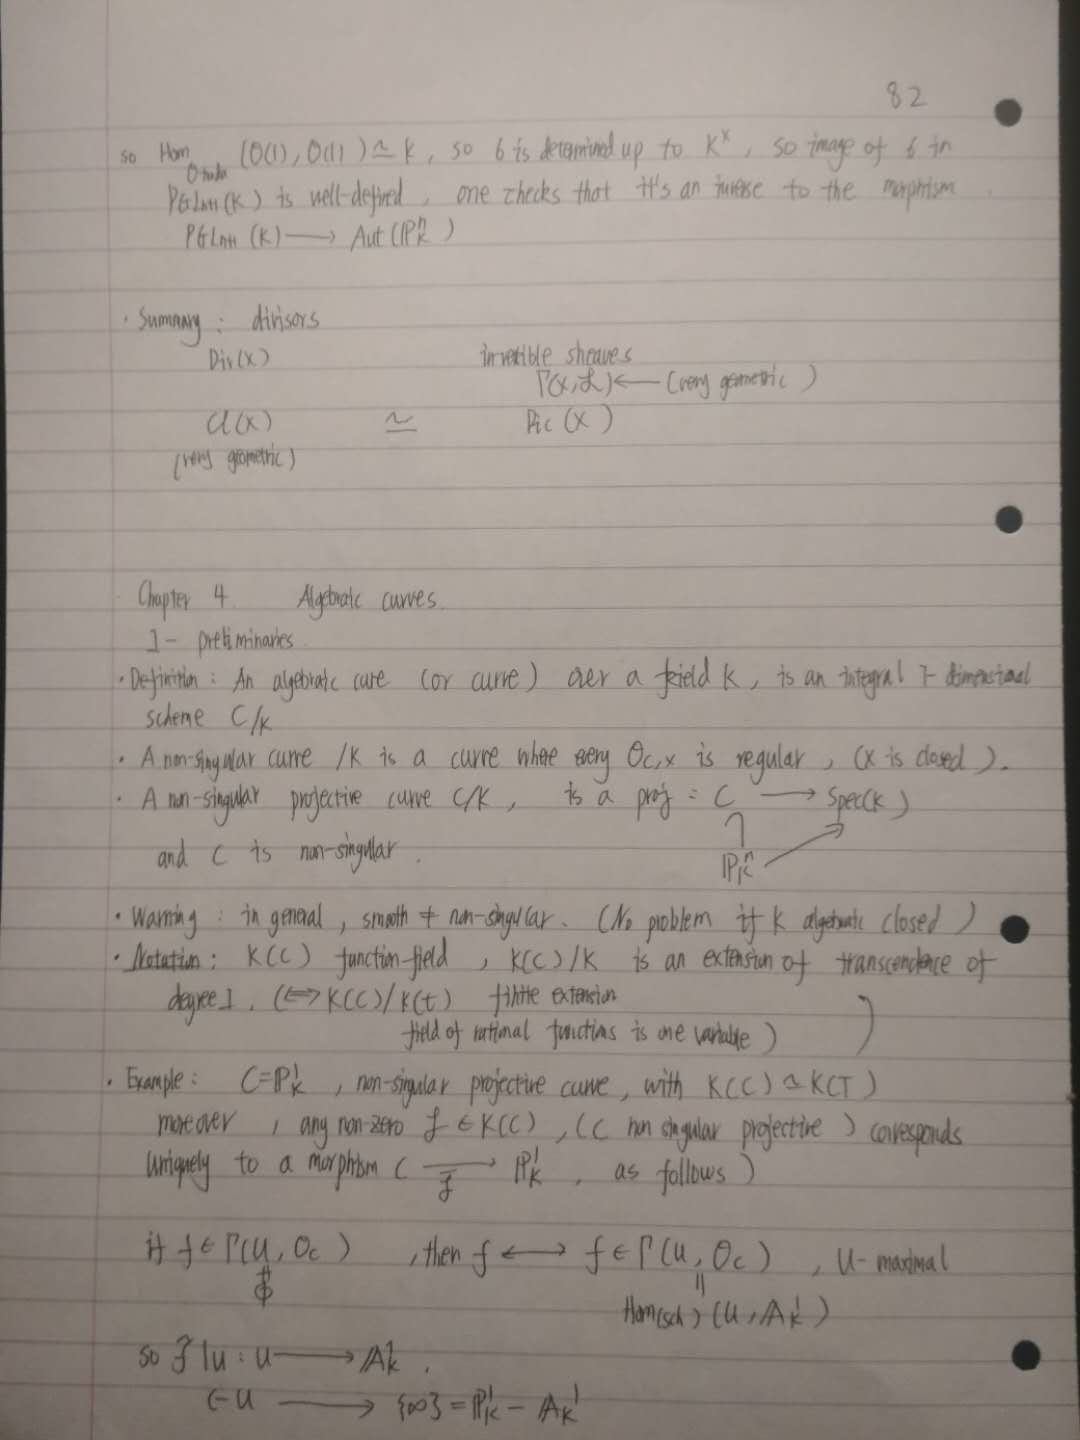 82
so Hom (O(1), O(1)) ≃ k, so 6 is determined up to K^x, so image of 6 in
PGLn+1(K) is well-defined, one checks that it's an inverse to the morphism
PGLn+1 (K) ⟶ Aut(ℙ^n_K)
· Summary : divisors
Div(X) invertible sheaves
Γ(X, ℒ) ⟵ (very geometric)
Cl(X) ≃ Pic(X)
(very geometric)
Chapter 4. Algebraic curves.
1- preliminaries
· Definition : An algebraic curve (or curve) over a field k, is an integral 1-dimensional
scheme C/K
· A non-singular curve /K is a curve where every O_{C,x} is regular, (x is closed).
· A non-singular projective curve C/K, is a proj = C ⟶ Spec(K)
and C is non-singular. ℙ^n_K
· Warning : in general, smooth ≠ non-singular. (No problem if K algebraic closed)
· Notation : K(C) function-field, K(C)/K is an extension of transcendence of
degree 1. (⟺ K(C)/K(t) finite extension
field of rational functions is one variable)
· Example : C=ℙ^1_K, non-singular projective curve, with K(C) ≃ K(T)
moreover, any non-zero f ∈ K(C), (C non singular projective) corresponds
uniquely to a morphism C ⟶ ℙ^1_K, as follows)
f̃
if f ∈ Γ(U, O_C), then f ⟷ f ∈ Γ(U, O_C), U- maximal
∦ ||
ϕ Hom(sch) (U, 𝔸^1_K)
so f̃|u : u ⟶ 𝔸^1_K.
C-U ⟶ {∞} = ℙ^1_K - 𝔸^1_K